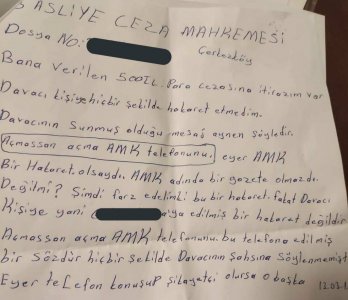 5 ASLİYE CEZA MAHKEMESİ
Dosya NO:
Çerkezköy
Bana verilen 500TL Para cezasına itirazım var
Davacı kişiye hiçbir şekilde hakaret etmedim.
Davacının Sunmuş olduğu mesaj aynen şöyledir.
Açmassan açma AMK telefonunu. eyer AMK
Bir Hakaret olsaydı. AMK adında bir gazete olmazdı.
Değilmi? Şimdi farz edelimki bu bir hakaret. fakat Davacı
Kişiye yani ya edilmiş bir hakaret değildir
Açmassan açma AMK telefonunu. bu telefona edilmiş
bir sözdür hiçbir şekilde Davacının şahsına söylenmemişt
Eyer teLefon konuşup şikayetçi olursa o başka